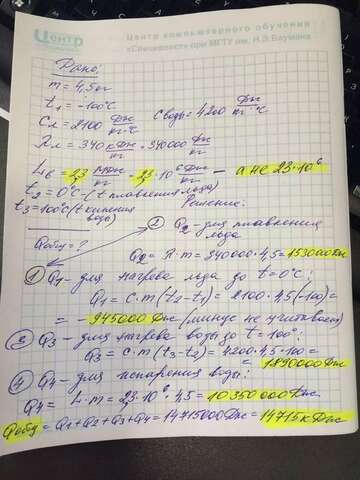 Центр
Центр компьютерного обучения
«Специалист» при МГТУ им. Н.Э.Баумана
Дано:
m = 4,5 кг
t₁ = -100°C
Cл = 2100 Дж/кг·°C Cводы = 4200 Дж/кг·°C
λл = 340 кДж/кг = 340000 Дж/кг
Lв = 2,3 МДж/кг = 2,3·10⁶ Дж/кг — а не 23·10⁶
t₂ = 0°C (t плавления льда)
t₃ = 100°C (t кипения воды)
Решение:
Qобщ = ?
② Q₂ - для плавления льда
Q₂ = λ·m = 340000·4,5 = 1530000 Дж
① Q₁ - для нагрева льда до t = 0°C:
Q₁ = C·m(t₂-t₁) = 2100·4,5(-100) =
= -945000 Дж (минус не учитываем)
③ Q₃ - для нагрева воды до t = 100°:
Q₃ = C·m(t₃-t₂) = 4200·4,5·100 =
= 1890000 Дж
④ Q₄ - для испарения воды:
Q₄ = L·m = 2,3·10⁶·4,5 = 10350000 Дж.
Qобщ = Q₁+Q₂+Q₃+Q₄ = 14715000 Дж = 14715 кДж